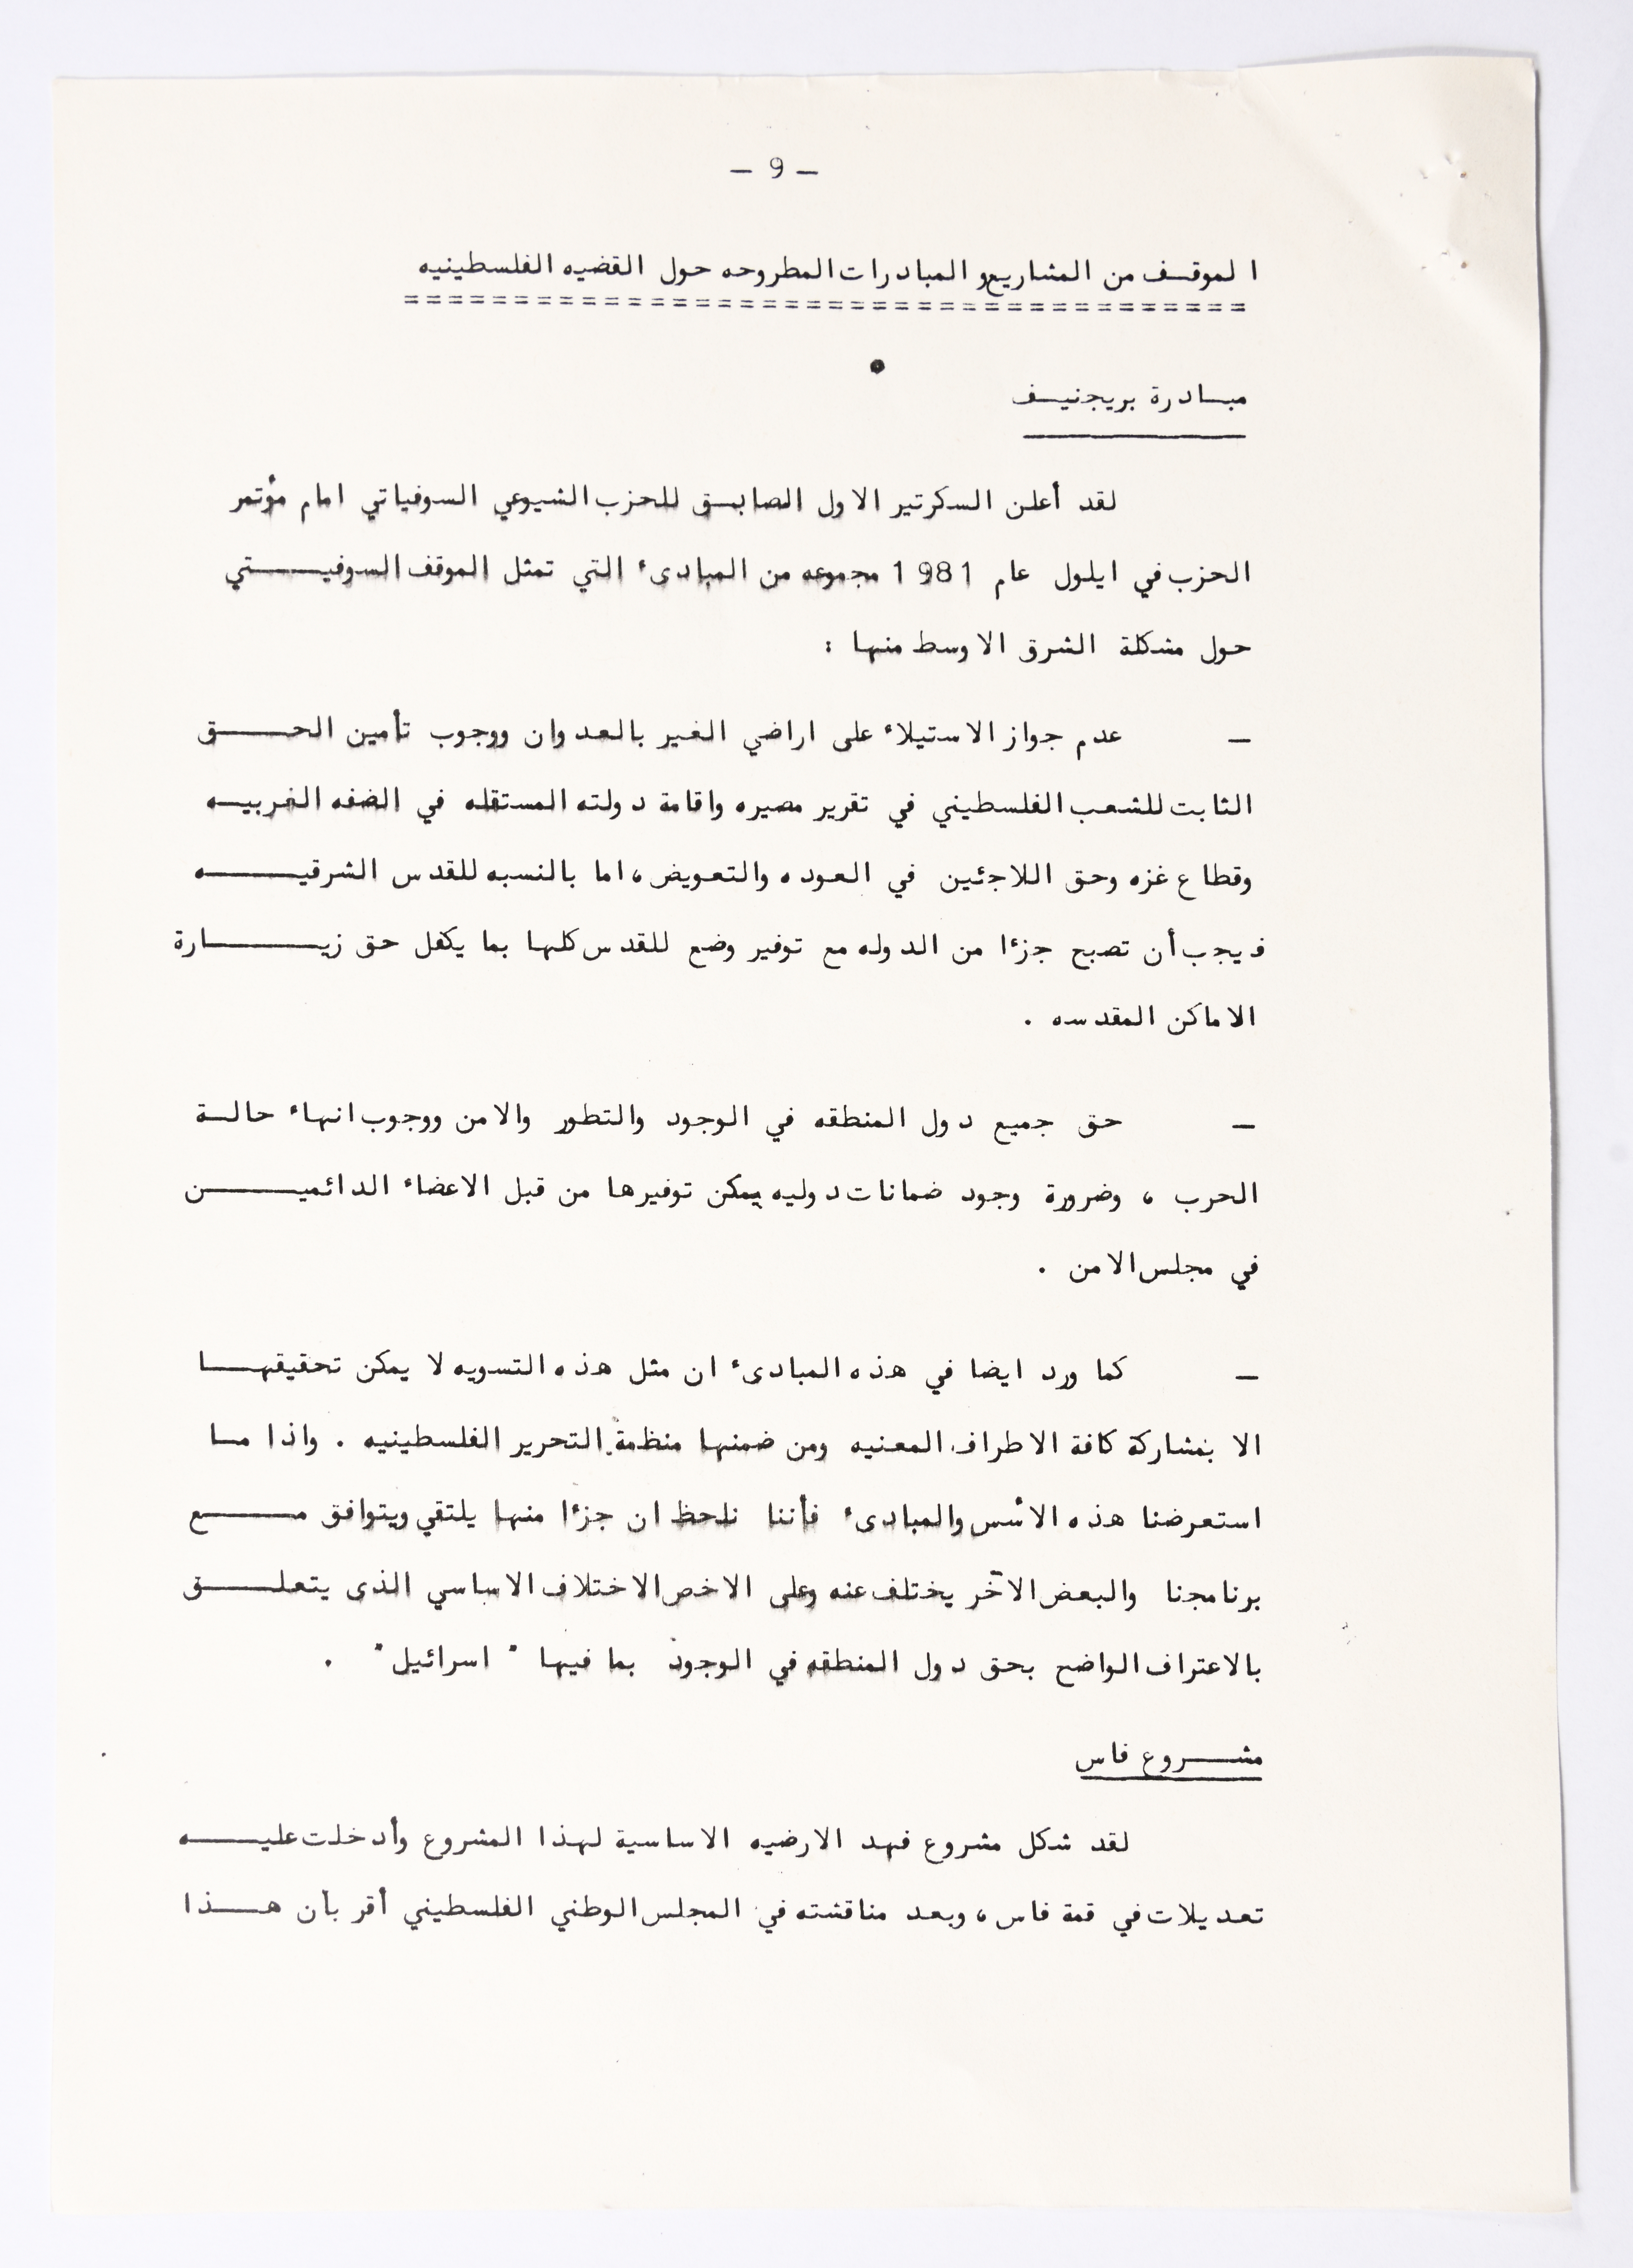 - 9 -
الموقف من المشاريع و المبادرات المطروحه حول القضيه الفلسطينيه
====================================
مبادرة بريجنيف
لقد أعلن السكرتير الاول الصابق للحزب الشيوعي السوفياتي امام مؤتمر
الحزب في ايلول عام 1981 مجموعه من المبادىء التي تمثل الموقف السوفيتي
حول مشكلة الشرق الاوسط منها :
- عدم جواز الاستيلاء على اراضي الغير بالعدوان ووجوب تأمين الحق
الثابت للشعب الفلسطيني في تقرير مصيره واقامة دولته المستقله في الضفه الغربيه
وقطاع غزه وحق اللاجئين في العوده والتعويض، اما بالنسبه للقدس الشرقيه
فيجب أن تصبح جزءا من الدوله مع توفير وضع للقدس كلها بما يكفل حق زيارة
الاماكن المقدسه .
- حق جميع دول المنطقه في الوجود والتطور والامن ووجوب انهاء حالة
الحرب ، وضرورة وجود ضمانات دوليه يمكن توفيرها من قبل الاعضاء الدائمين
في مجلس الامن .
- كما ورد ايضا في هذه المبادىء ان مثل هذه التسويه لا يمكن تحقيقها
الا بمشاركة كافة الاطراف المعنيه ومن ضمنها منظمة التحرير الفلسطينيه . واذا ما
استعرضنا هذه الأسس والمبادىء فأننا نلحظ ان جزءا منها يلتقي ويتوافق مع
برنامجنا والبعض الآخر يختلف عنه وعلى الاخص الاختلاف الاساسي الذى يتعلق
بالاعتراف الواضح بحق دول المنطقه في الوجود بما فيها " اسرائيل" .
مشروع فاس
لقد شكل مشروع فهد الارضيه الاساسية لهذا المشروع وأدخلت عليه
تعديلات في قمة فاس، وبعد مناقشته في المجلس الوطني الفلسطيني أقر بأن هذا